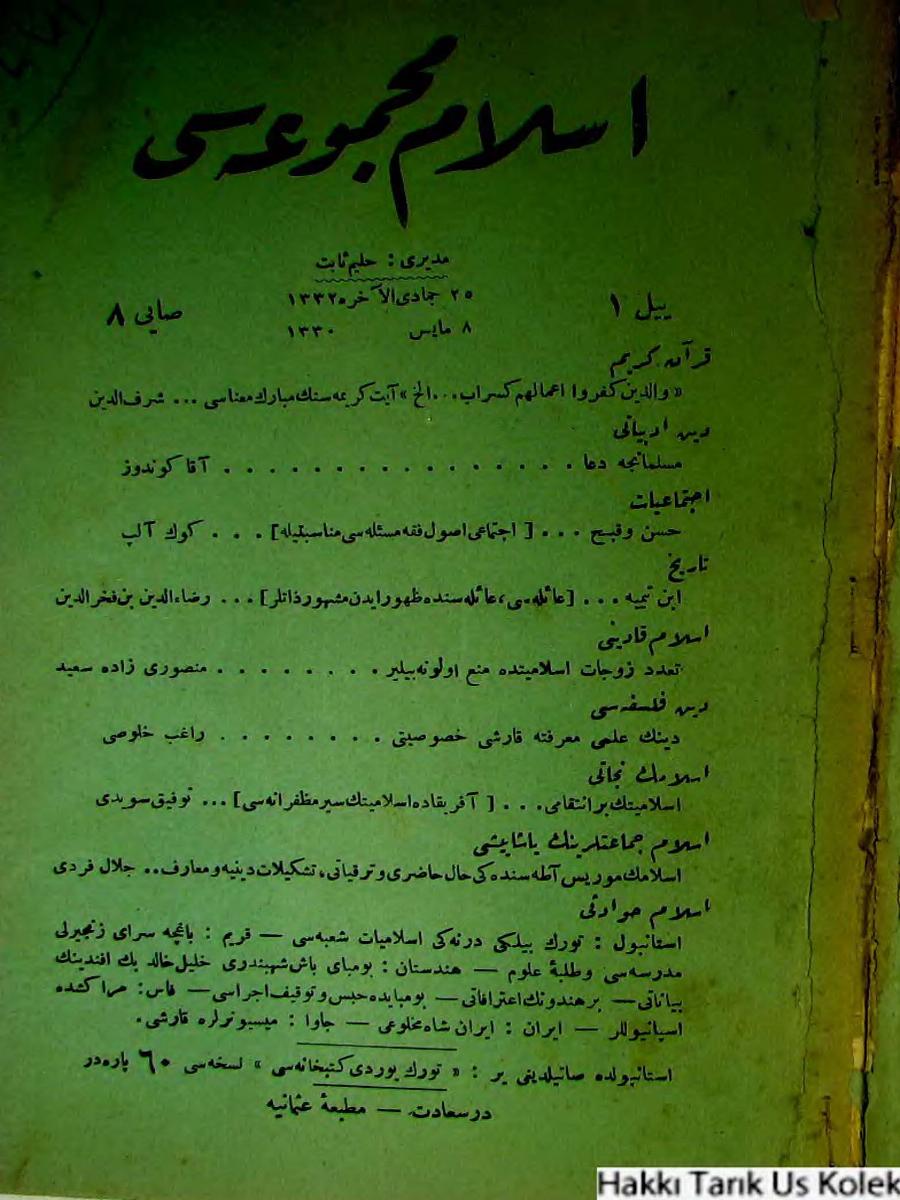 اسلام مجموعه‌سی
مدیری : حلیم ثابت
ییل ۱
۲۵ جمادی الآخره ۱۳۳۲
۸ مایس ۱۳۳۰
صایی ۸
قرآن کریم
«والذین کفروا اعمالهم کسراب... الخ» آیت کریمه‌سنك مبارك معناسی ... شرف‌الدین
دین ادبیاتی
مسلمانجه دعا . . . . . . . . . . . . . . . . آقا کوندوز
اجتماعیات
حسن وقبح ... [ اجتماعی اصول فقه مسئله‌سی مناسبتیله ] . . . کوك آلپ
تاریخ
ابن تیمیه ... [عائله‌سی، عائله‌سنده ظهور ایدن مشهور ذاتلر] ... رضاءالدین بن فخرالدین
اسلام قادینی
تعدد زوجات اسلامیتده منع اولونه‌بیلیر . . . . . . . . منصوری زاده سعید
دین فلسفه‌سی
دینك علمی معرفته قارشی خصوصیتی . . . . . . . . راغب خلوصی
اسلامك نجاتی
اسلامیتك بر انتقامی. . . [ آفریقاده اسلامیتك سیر مظفرانه‌سی ] ... توفیق سویدی
اسلام جماعتلرینك یاشاییشی
اسلامك موریس آطه‌سنده‌کی حال حاضری و ترقیاتی، تشکیلات دینیه و معارف .. جلال فردی
اسلام حوادثی
استانبول : تورك بیلکی درنه‌کی اسلامیات شعبه‌سی — قریم : باغچه سرای زنجیرلی
مدرسه‌سی وطلبهٔ علوم — هندستان : بومبای باش شهبندری خلیل خالد بك افندینك
بیاناتی — بر هندونك اعترافاتی — بومبایده حبس و توقیف اجراسی — فاس : مراکشده
اسپانیوللر — ایران : ایران شاه مخلوعی — جاوا : میسیونرلره قارشی.
استانبولده صاتیلدیغی یر : « تورك یوردی کتبخانه‌سی » نسخه‌سی ۶۰ پاره‌در
درسعادت — مطبعهٔ عثمانیه
Hakkı Tarık Us Kolek